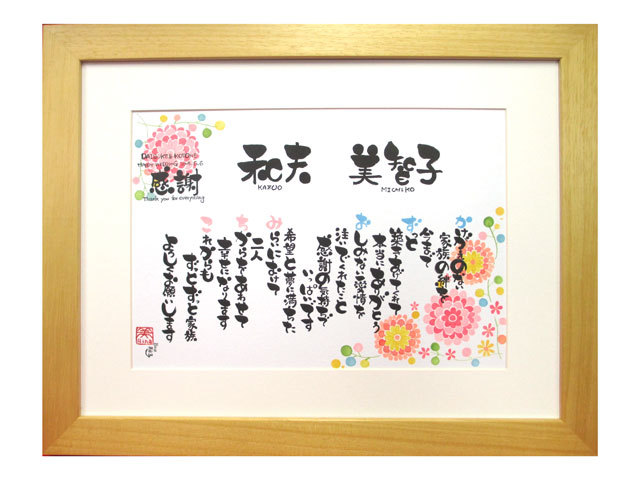 和夫 美智子
KAZUO MICHIKO
HAPPY WEDDING
感謝
Thank you for everything
かけがえのない
家族の絆を
今まで
ずっと
築きあげてくれて
本当にありがとう
おしみない愛情を
注いでくれたこと
感謝の気持ちで
いっぱいです
希望と夢に満ちた
みらいにむけて
二人
ちからをあわせて
幸せになります
これからも
ずっとずっと家族
よろしくお願いします